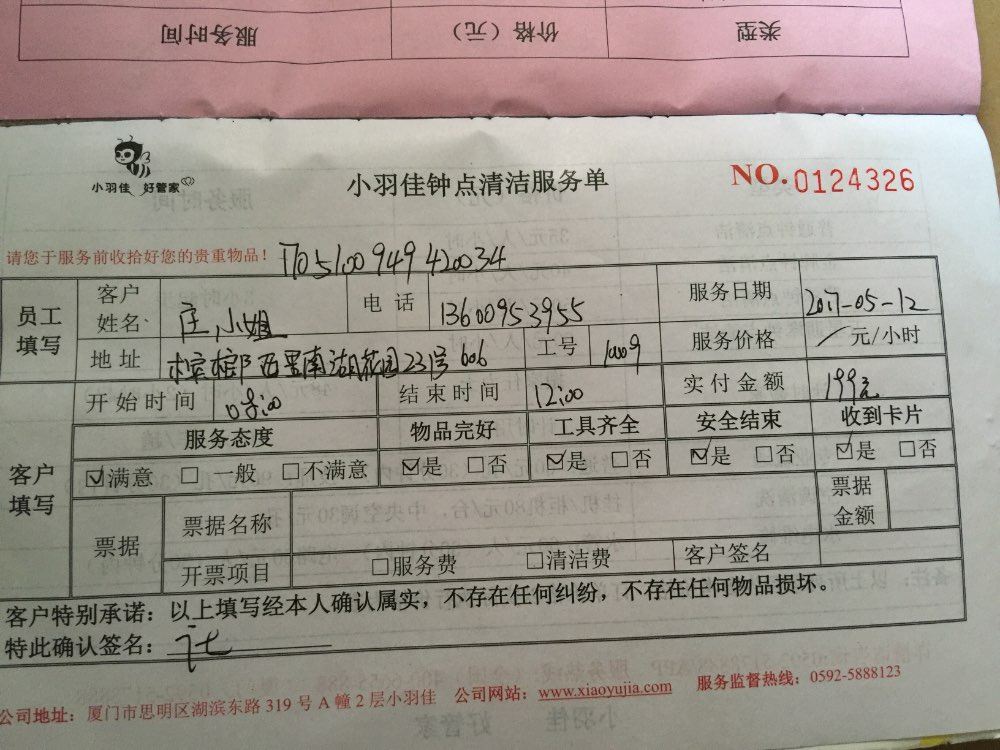 类型 价格（元） 服务时间
小羽佳 好管家
小羽佳钟点清洁服务单
NO.0124326
请您于服务前收拾好您的贵重物品！
5100949420034
员工填写
客户姓名 小姐 电话 13600953955 服务日期 2017-05-12
地址 西里南湖花园231号606 工号 服务价格 元/小时
开始时间 08:00 结束时间 12:00 实付金额 199元
客户填写
服务态度 物品完好 工具齐全 安全结束 收到卡片
☑满意 □一般 □不满意 ☑是 □否 ☑是 □否 ☑是 □否 ☑是 □否
票据 票据名称 票据金额
开票项目 □服务费 □清洁费 客户签名
客户特别承诺：以上填写经本人确认属实，不存在任何纠纷，不存在任何物品损坏。
特此确认签名：
公司地址：厦门市思明区湖滨东路319号A幢2层小羽佳 公司网站：www.xiaoyujia.com 服务监督热线：0592-5888123